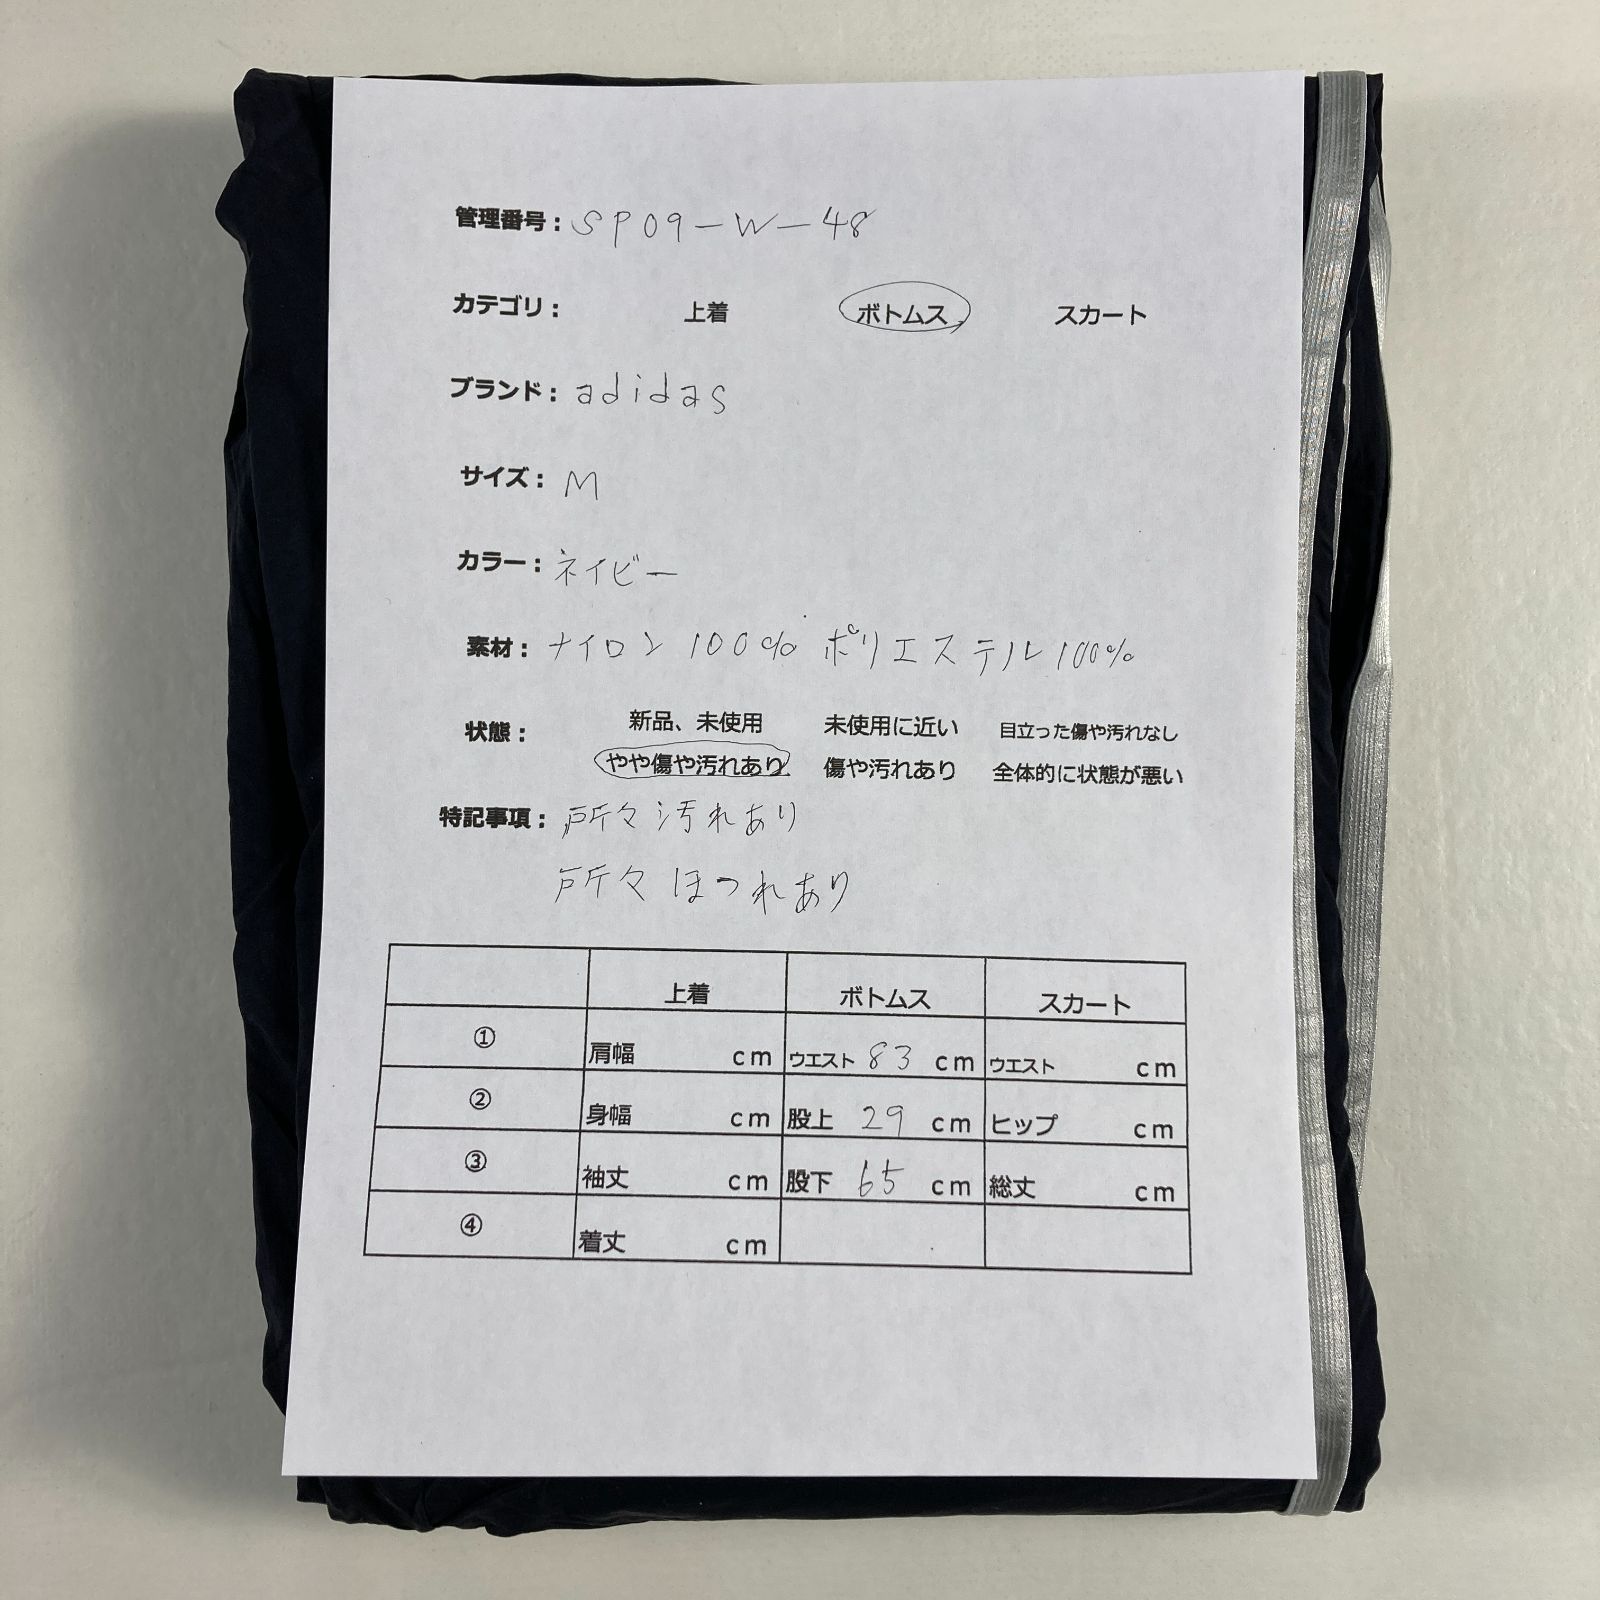 管理番号: SP09-W-48
カテゴリ: 上着 ボトムス スカート
ブランド: adidas
サイズ: M
カラー: ネイビー
素材: ナイロン100% ポリエステル100%
状態: 新品、未使用 未使用に近い 目立った傷や汚れなし
やや傷や汚れあり 傷や汚れあり 全体的に状態が悪い
特記事項: 所々汚れあり
所々ほつれあり
上着 ボトムス スカート
① 肩幅 cm ウエスト 83 cm ウエスト cm
② 身幅 cm 股上 29 cm ヒップ cm
③ 袖丈 cm 股下 65 cm 総丈 cm
④ 着丈 cm